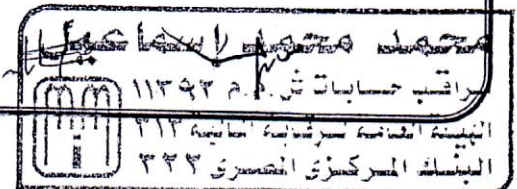 محمد محمد إسماعيل
مراقب حسابات ش.م.م ١١٣٩٢
الهيئة العامة للرقابة المالية ٣١٣
البنك المركزى المصرى ٣٢٢